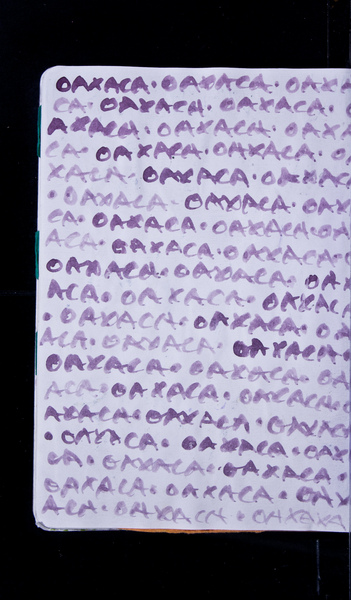 OAXACA · OAXACA · OAXA
CA · OAXACA · OAXACA ·
AXACA · OAXACA · OAXA
CA · OAXACA · OAXACA · O
XACA · OAXACA · OAXAC
· OAXACA · OAXACA · OAX
CA · OAXACA · OAXACA · OA
ACA · OAXACA · OAXACA ·
OAXACA · OAXACA · OAX
ACA · OAXACA · OAXACA
· OAXACA · OAXACA · OA
ACA · OAXACA · OAXACA ·
OAXACA · OAXACA · OAXA
ACA · OAXACA · OAXACA
AXACA · OAXACA · OAXAC
· OAXACA · OAXACA · OAX
CA · OAXACA · OAXACA ·
OAXACA · OAXACA · OAX
ACA · OAXACA · OAXAXA